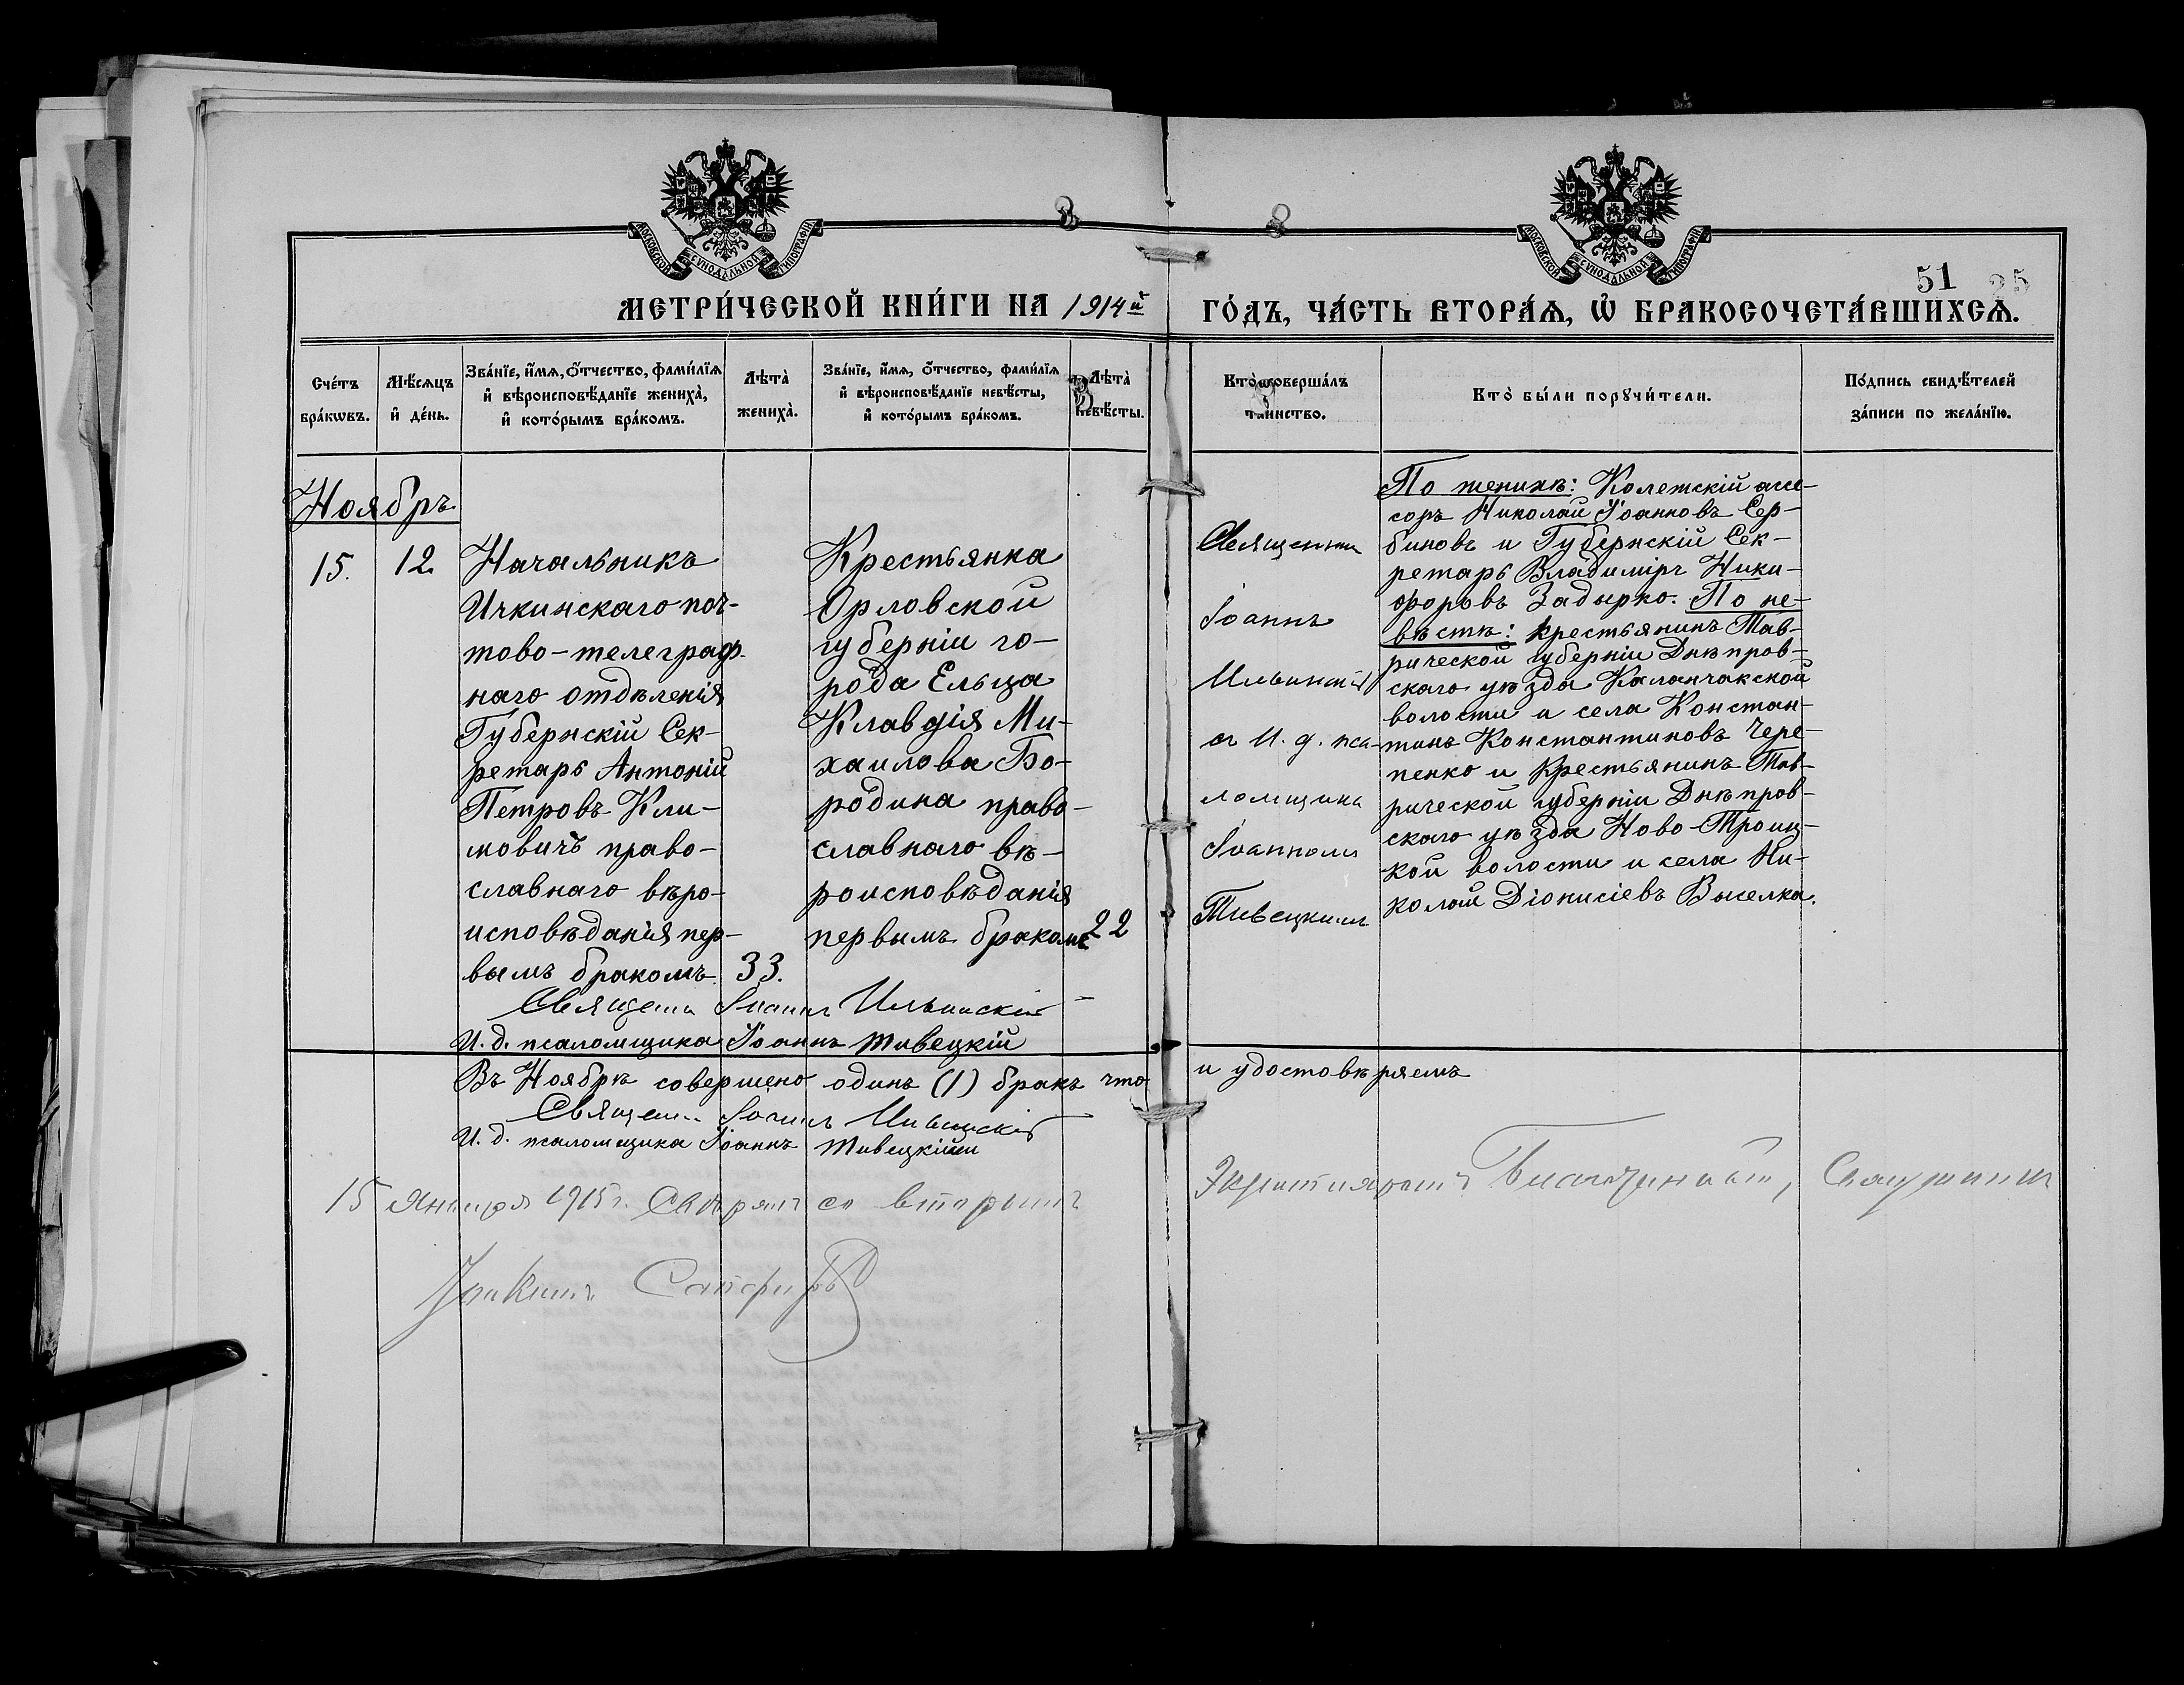 МОСКОВСКОЙ СѴНОДАЛЬНОЙ ТИПОГРАФІИ
МОСКОВСКОЙ СѴНОДАЛЬНОЙ ТИПОГРАФІИ
51 25
МЕТРИ́ЧЕСКОЙ КНИ́ГИ НА 1914й ГО́ДЪ, ЧА́СТЬ ВТОРА́Ѧ, Ѡ҆ БРАКОСОЧЕТА́ВШИХСѦ.
Сче́тъ
бра́кѡвъ.
Мѣ́сѧцъ
и҆ де́нь.
Зва́нїе, и҆́мѧ, ѻ҆́тчество, фами́лїѧ
и҆ вѣроисповѣ́данїе жениха̀,
и҆ кото́рымъ бра́комъ.
Лѣта̀
жениха̀.
Зва́нїе, и҆́мѧ, ѻ҆́тчество, фами́лїѧ
и҆ вѣроисповѣ́данїе невѣ́сты,
и҆ кото́рымъ бра́комъ.
Лѣта̀
невѣ́сты.
Кто̀ соверша́лъ
та́инство.
Кто̀ бы́ли порꙋчи́тели.
По́дпись свидѣ́телей
за́писи по жела́нїю.
Ноябрь
15.
12.
Начальникъ
Ичкинскаго поч-
тово-телеграф-
наго отдѣленія
Губернскій Сек-
ретарь Антоній
Петровъ Кли-
мовичъ право-
славнаго вѣро-
исповѣданія пер-
вымъ бракомъ.
33.
Крестьянка
Орловской
губерніи го-
рода Ельца
Клавдія Ми-
хаилова Бо-
родина право-
славнаго вѣ-
роисповѣданія
первымъ бракомъ
22
Священник
Іоаннъ
Ильинскій
съ И. д. пса-
ломщика
Іоанномъ
Тивецкимъ
По женихѣ: Колежскій ассе-
соръ Николай Іоанновъ Сер-
биновъ и Губернскій Сек-
ретарь Владиміръ Ники-
форовъ Задырко. По не-
вѣстѣ: крестьянинъ Тав-
рической губерніи Днѣпров-
скаго уѣзда Каланчакской
волости и села Констан-
тинъ Константиновъ Чере-
пенко и крестьянинъ Тав-
рической губерніи Днѣпров-
скаго уѣзда Ново-Троиц-
кой волости и села Ни-
колай Діонисіевъ Выселка.
Священ. Іоаннъ Ильинскій
И. д. псаломщика Іоаннъ Тивецкій
Въ Ноябрѣ совершено одинъ (1) бракъ что и удостовѣряемъ
Священ. Іоаннъ Ильинскій
И. д. псаломщика Іоаннъ Тивецкій
15 Января 1915 г. Свѣрялъ со вторымъ Экземпляромъ Благочинный, Священник
Іоакимъ